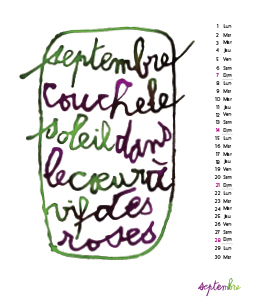 septembre
couche le
soleil dans
le cœur à
vif des
roses
1 Lun
2 Mar
3 Mer
4 Jeu
5 Ven
6 Sam
7 Dim
8 Lun
9 Mar
10 Mer
11 Jeu
12 Ven
13 Sam
14 Dim
15 Lun
16 Mar
17 Mer
18 Jeu
19 Ven
20 Sam
21 Dim
22 Lun
23 Mar
24 Mer
25 Jeu
26 Ven
27 Sam
28 Dim
29 Lun
30 Mar
septembre